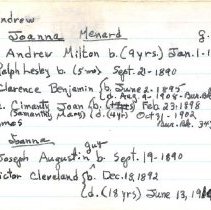 Andrew
Joanna Menard 8-
Andrew Milton b. (9yrs.) Jan. 1-1
Ralph Lesley b. (5 mo) Sept. 21-1890
Clarence Benjamin {b. June 2-1895
{d. Aug 9-1908-Bur.
Cimanty Joan {b. Feb 23-1898
(Samantha Mary) {d. (4yr) Oct 31-1902
Bur. Bk. 34
James
Joanna
guy
Joseph Augustin b. Sept. 19-1890
Victor Cleveland {b. Dec. 18, 1892
{d. (18 yrs) June 13, 19